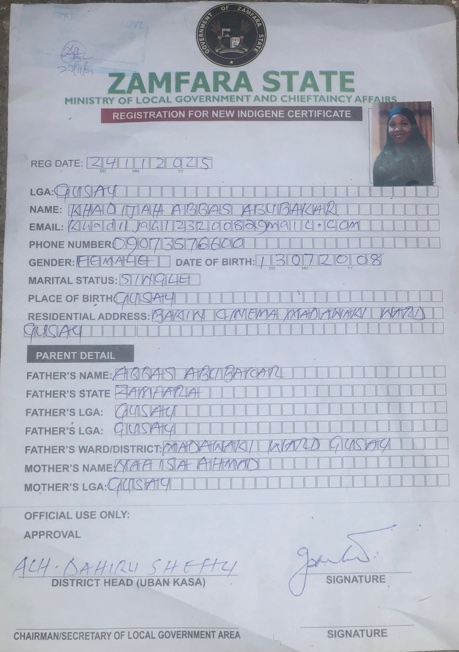 GOVERNMENT OF ZAMFARA STATE
ZAMFARA STATE
MINISTRY OF LOCAL GOVERNMENT AND CHIEFTAINCY AFFAIRS
REGISTRATION FOR NEW INDIGENE CERTIFICATE
REG DATE: 24112025
LGA: GUSAU
NAME: KHADIJAH ABBAS ABUBAKAR
EMAIL:
PHONE NUMBER: 09073576600
GENDER: FEMALE DATE OF BIRTH: 13072008
MARITAL STATUS: SINGLE
PLACE OF BIRTH: GUSAU
RESIDENTIAL ADDRESS: BAKIN CINEMA MADAWAKI WARD
GUSAU
PARENT DETAIL
FATHER'S NAME: ABBAS ABUBAKAR
FATHER'S STATE ZAMFARA
FATHER'S LGA: GUSAU
FATHER'S LGA: GUSAU
FATHER'S WARD/DISTRICT: MADAWAKI WARD GUSAU
MOTHER'S NAME: AHMAD
MOTHER'S LGA: GUSAU
OFFICIAL USE ONLY:
APPROVAL
ALH. DAHIRU SHEHU
DISTRICT HEAD (UBAN KASA) SIGNATURE
CHAIRMAN/SECRETARY OF LOCAL GOVERNMENT AREA SIGNATURE